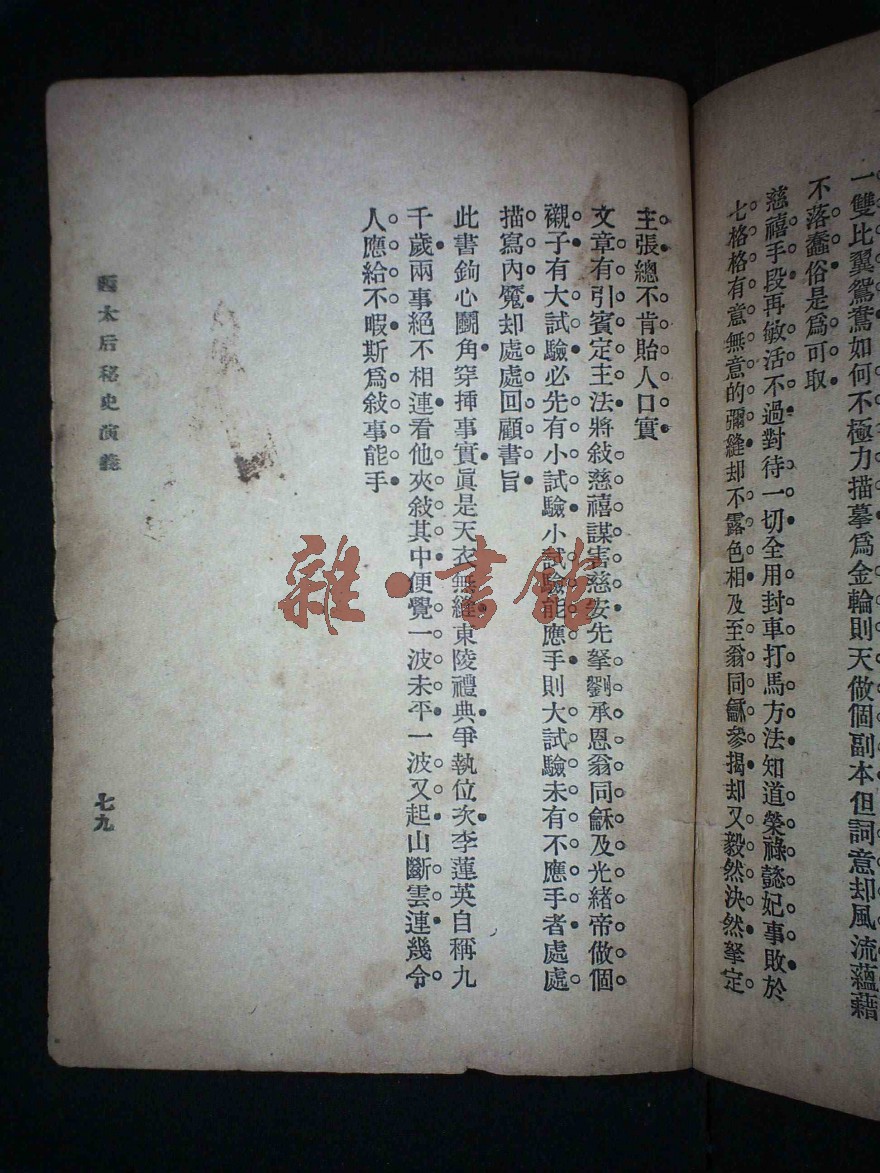 一雙比翼鴛鴦如何不極力描摹爲金輪則天做個副本但詞意却風流蘊藉
不落蠢俗是爲可取
慈禧手段再敏活不過對待一切全用封車打馬方法知道榮祿懿妃事敗於
七格格有意無意的彌縫却不露色相及至翁同龢參揭却又毅然決然拏定
主張總不肯貽人口實
文章有引賓定主法將敍慈禧謀害慈安先拏劉承恩翁同龢及光緒帝做個
襯子有大試驗必先有小試驗小試驗能應手則大試驗未有不應手者處處
描寫內魔却處處回顧書旨
此書鉤心鬬角穿揷事實眞是天衣無縫東陵禮典爭執位次李蓮英自稱九
千歲兩事絕不相連看他夾敍其中便覺一波未平一波又起山斷雲連幾令
人應給不暇斯爲敍事能手
西太后秘史演義
七九
雜·書館